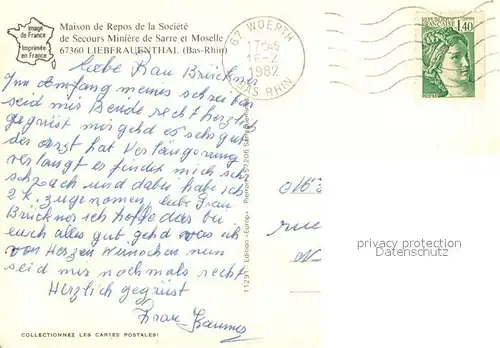 Image
de France
Imprimée
en France
Maison de Repos de la Société
de Secours Minière de Sarre et Moselle
67360 LIEBFRAUENTHAL (Bas-Rhin)
67 WOERTH
17H45
15-2
1982
BAS RHIN
RÉPUBLIQUE
FRANÇAISE
1,40
POSTES
Liebe Frau Brückner
Im Amfang meines schreiben
seid mir Beide recht herzlich
gegrüst mir gehd es sehr gut
der Arzt hat Verlängerung
verlangt es findet mich zu
schwach und dabei habe ich
2 K. zugenomen liebe Frau
Brückner ich hoffe das bei
euch alles gut gehd was ich
von Herzen Wünschen nun
seid mir nochmals recht
Herzlich gegrüst
Frau
rue
11291 - Edition «Europ» Pierron 57206 Sarreguemines
privacy protection
Datenschutz
COLLECTIONNEZ LES CARTES POSTALES!